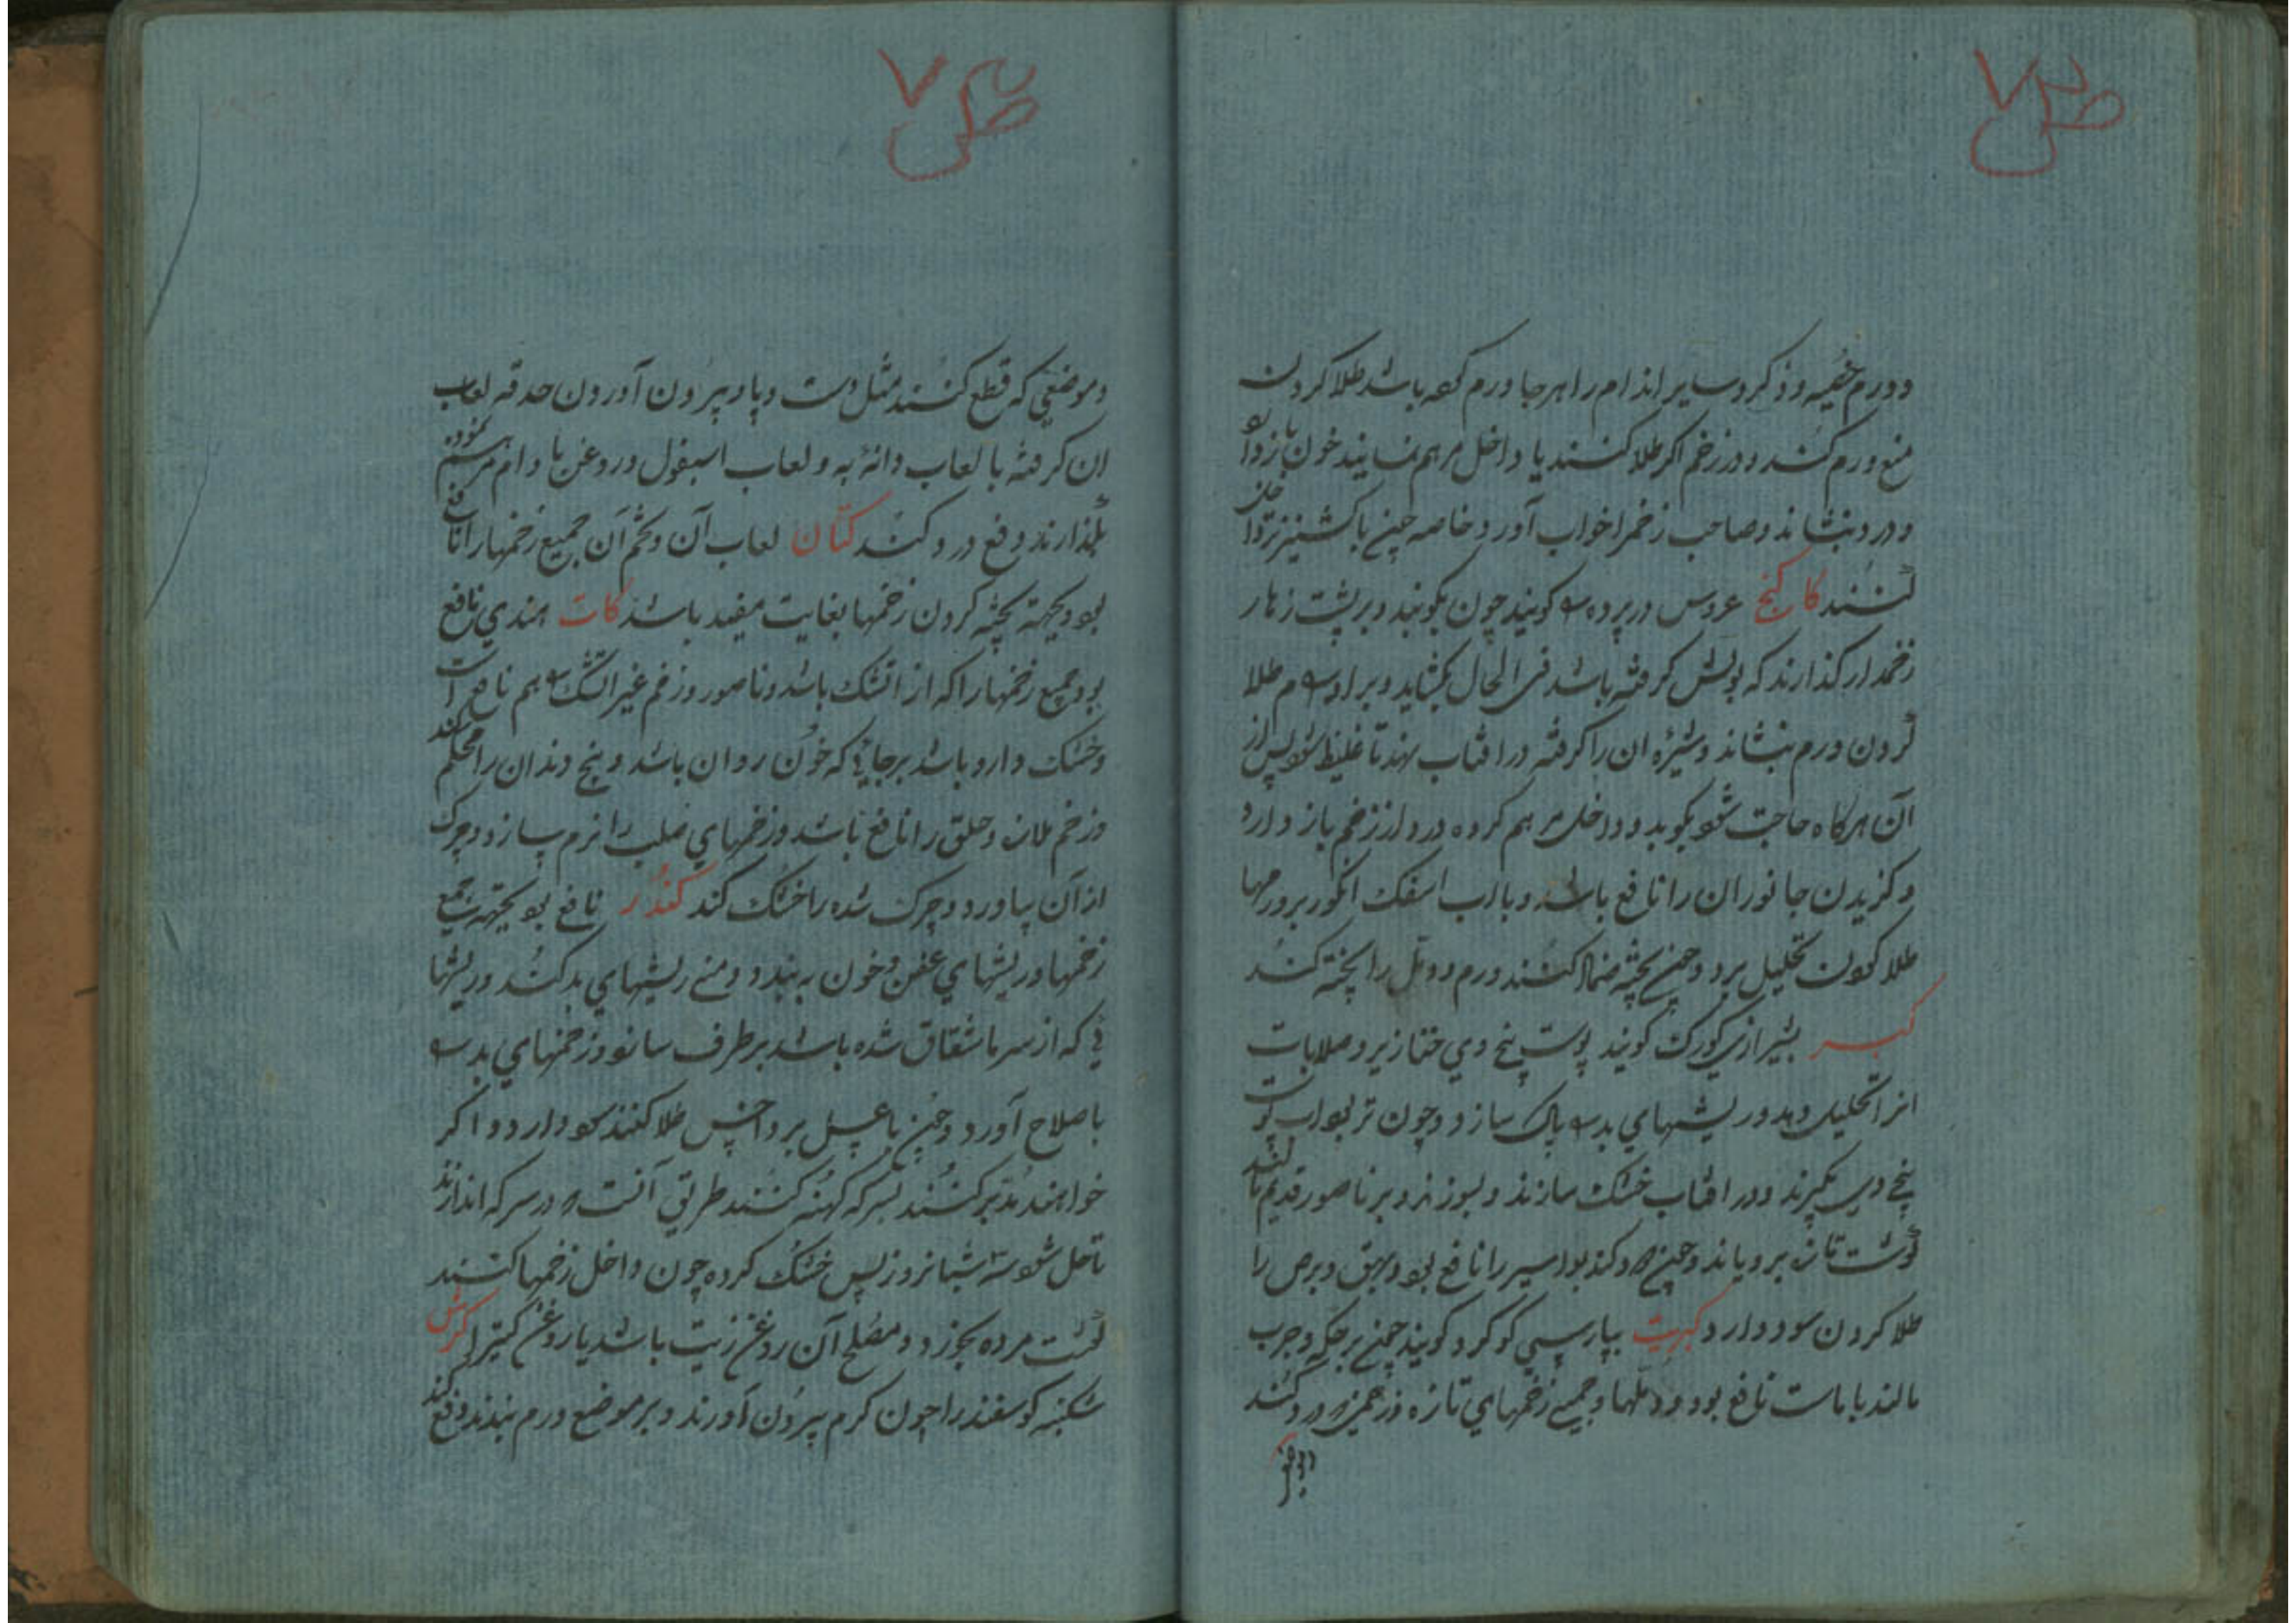 ودورم خصیه و ذکر و سایر اندام را هر جا ورم کرده باشد طلا کردن
منع ورم کند و در زخم اکر طلا کنند یا داخل مرهم نمایند خون باز دارد
و درد بنشاند و صاحب زخم را خواب آورد خاصه چون با کشنیز تر
کنند کاکنج عروس در پرده کویند چون بکوبند و بر پشت زهار
زخمدار کذارند که بولش کرفته باشد فی الحال بکشاید و بر اورام طلا
کردن ورم بنشاند و شیره ان را کرفته در افتاب نهند تا غلیظ شود پس از
آن هرکاه حاجت شود بکوبد و داخل مرهم کرده درد از زخم باز دارد
و کزیدن جانوران را نافع باشد و با اب انکور بر ورمها
طلا کردن تحلیل برد و چون پخته ضماد کنند ورم و دمل را پخته کند
کبر بشیرازی کورک کویند پوست بیخ وی خنازیر و صلابات
انرا تحلیل دهد و ریشهای بد پاک سازد و چون تر بود اب پوست
بیخ وی بکیرند و در افتاب خشک سازند و بسوزند و بر ناصور قدیم
کوشت تازه برویاند و چون دود کند بواسیر را نافع بود و بهق و برص را
طلا کردن سود دارد کبریت بپارسی کوکرد کویند چون بر حکه و جرب
مالند با ماست نافع بود و دملها و جمیع زخمهای تازه
و موضعی که قطع کنند مثل دست و پا و بیرون آوردن حدقه لعاب
ان کرفته با لعاب دانه به و لعاب اسبغول و روغن بادام مرهم نموده
بکذارند دفع درد کند کتان لعاب آن و تخم آن جمیع زخمها را نافع
بود و بجهة پخته کردن زخمها بغایت مفید باشد کات هندی نافع
بود جمیع زخمها را که از اتشک باشد و ناصور و زخم غیر اتشک هم نافع است
و خشک دارو باشد هر جایی که خون روان باشد و بیخ دندان را محکم کند
و زخم دهان و حلق را نافع باشد و زخمهای صلب را نرم سازد و چرک
از آن بیاورد و چرک شده را خشک کند کندر نافع بود بجهة جمیع
زخمها و ریشهای عفن و خون به بندد و منع ریشهای بد کند و ریشها
ئی که از سرما شقاق شده باشد برطرف سازد و زخمهای بد
باصلاح آورد و چون با عسل بر داخس طلا کنند سود دارد و اکر
خواهند مدبر کنند بسرکه کهنه کنند طریق آنست در سرکه اندازند
تا حل شود سه شبانروز پس خشک کرده چون داخل زخمها کنند
کوشت مرده بخورد و مصلح آن روغن زیت باشد یا روغن کتیرا کرش
شکنبه کوسفند را چون کرم بیرون آورند و بر موضع ورم بندند دفع کند